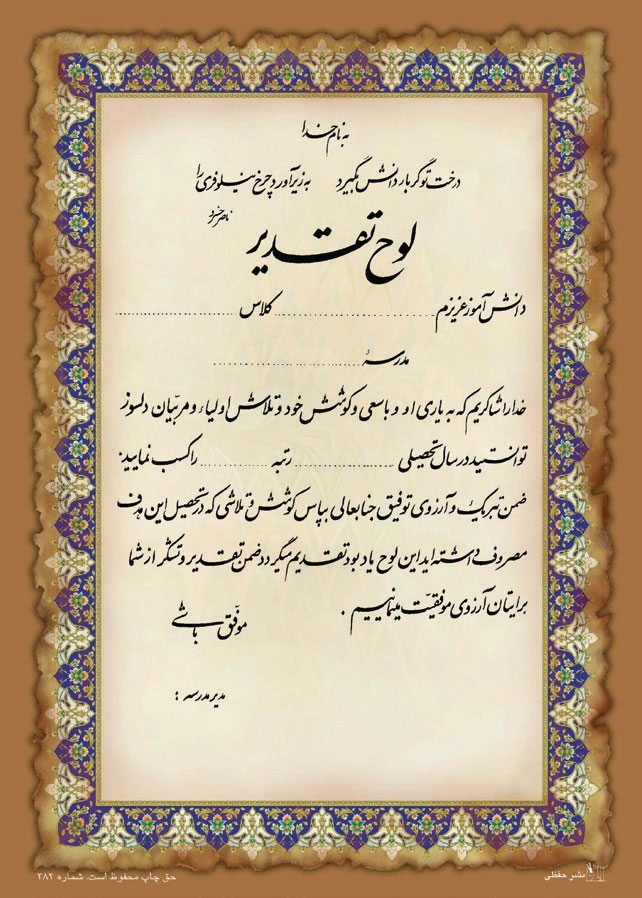 به نام خدا
درخت تو گر بار دانش بگیرد به زیر آورد چرخ نیلوفری را
ناصر خسرو
لوح تقدیر
دانش آموز عزیزم ........................ کلاس ........................
مدرسهٔ ........................
خدا را شاکریم که به یاری او و با سعی و کوشش خود و تلاش اولیاء و مربیّان دلسوز
توانستید در سال تحصیلی .................... رتبه .................... را کسب نمایید.
ضمن تبریک و آرزوی توفیق جنابعالی بپاس کوشش و تلاشی که در تحصیل این هدف
مصروف داشته اید این لوح یادبود تقدیم میگردد ضمن تقدیر و تشکر از شما
برایتان آرزوی موفقیّت مینماییم .
موفّق باشی
مدیر مدرسه :
نشر حفظی
حق چاپ محفوظ است. شماره ۳۸۲